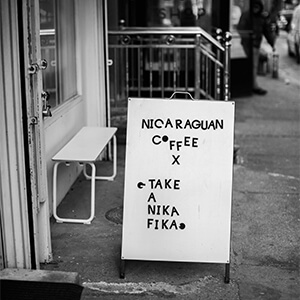 NICARAGUAN
COFFEE
X
TAKE
A
NIKA
FIKA